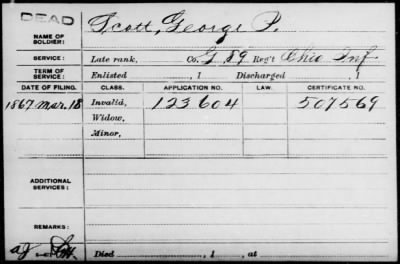 DEAD
NAME OF SOLDIER: Scott, George P.
SERVICE: Late rank, Co. G 89 Reg't Ohio Inf.
TERM OF SERVICE: Enlisted , 1 Discharged , 1
DATE OF FILING. CLASS. APPLICATION NO. LAW. CERTIFICATE NO.
1867 Mar. 18 Invalid, 123604 507569
Widow,
Minor,
ADDITIONAL SERVICES:
REMARKS:
Died , 1 , at